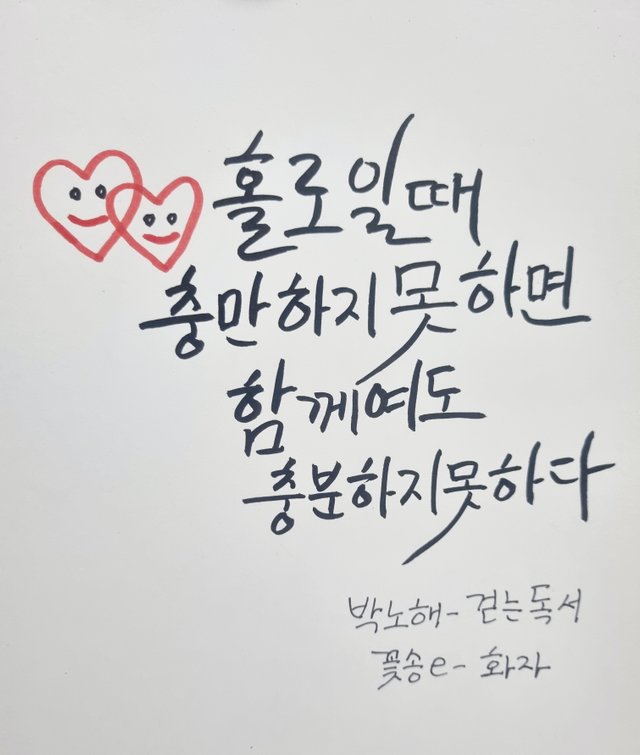 홀로일때
충만하지못하면
함께여도
충분하지못하다
박노해-걷는독서
꽃송e-화자